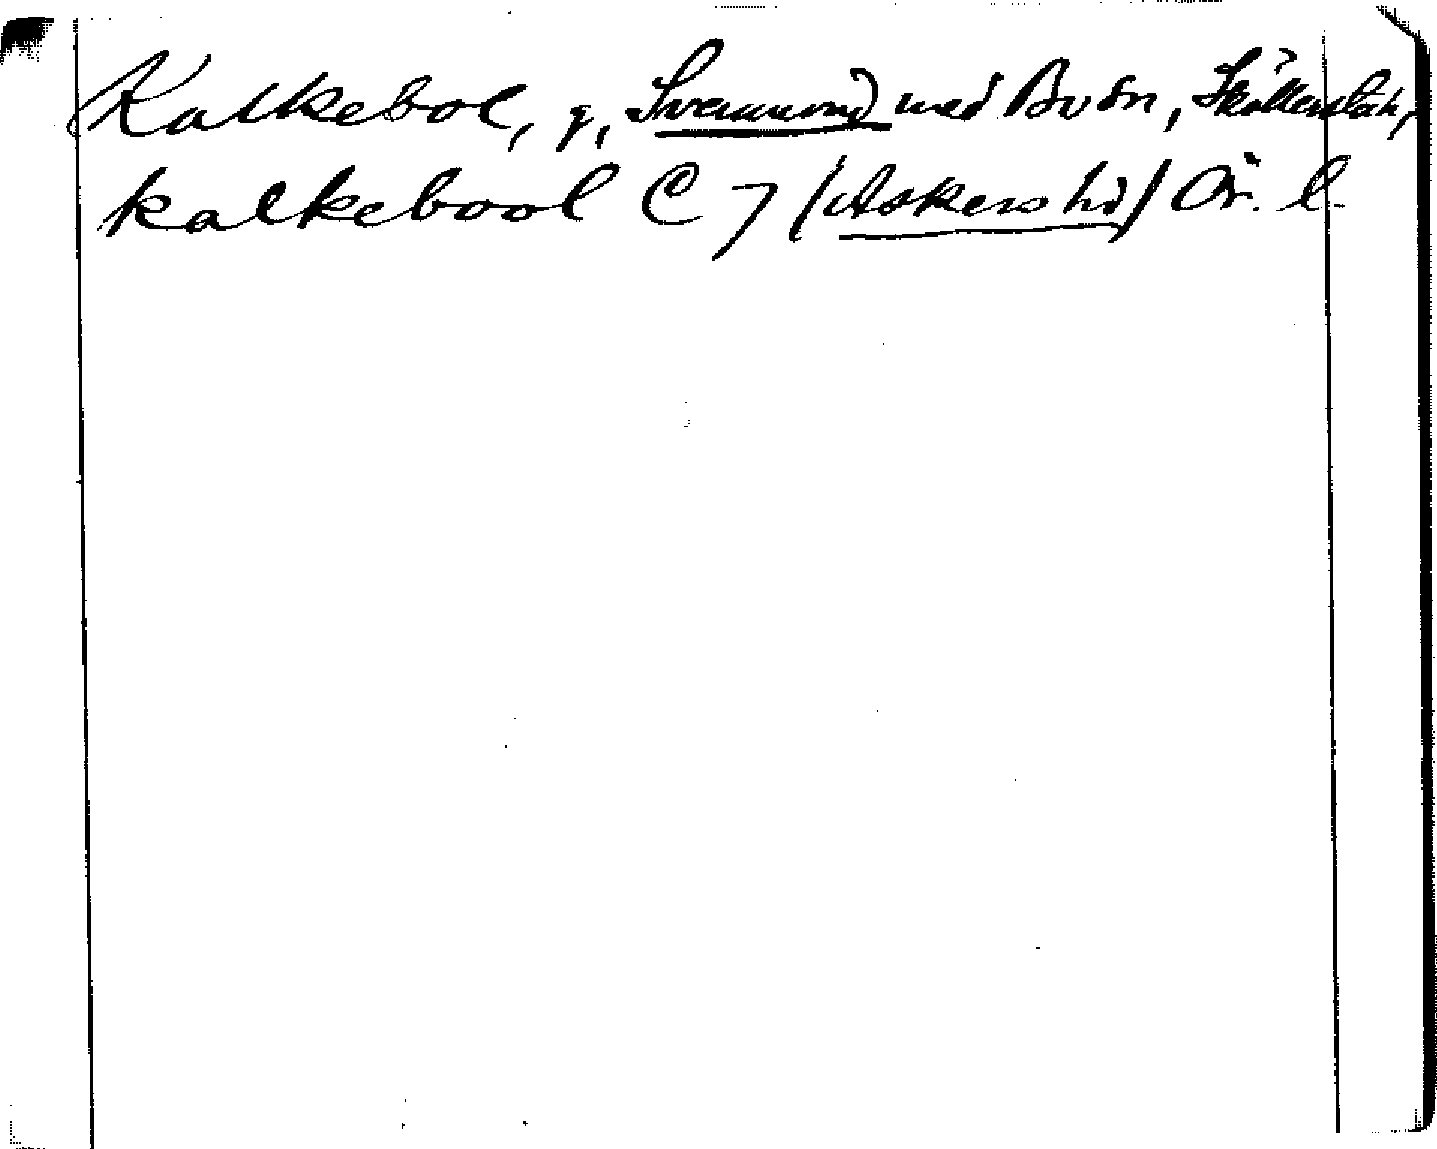 Kalkebol, g, Svennevad med Bo sn, Sköllersta h,
kalkebool C 7 (Askers hd) Ör. l.